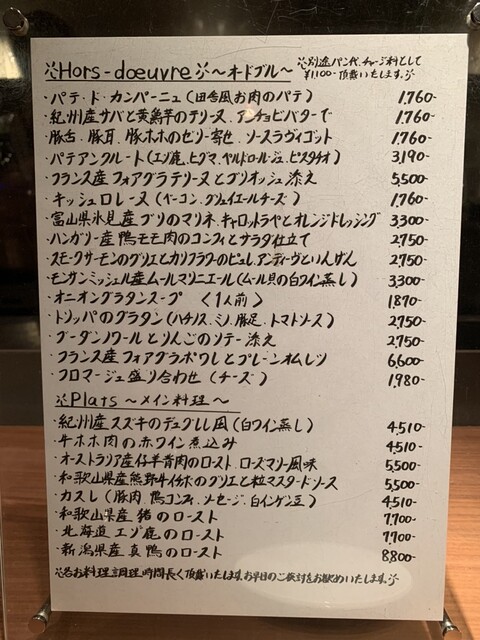 ※Hors-doeuvre※〜オードブル〜
※別途パン代、チャージ料として
¥1100-頂戴いたします。※
・パテ・ド・カンパーニュ(田舎風お肉のパテ) 1,760-
・紀州産サバと黄美芋のテリーヌ、アンチョビバターで 1,760-
・豚舌、豚耳、豚ホホのゼリー寄せ、ソースラヴィゴット 1,760-
・パテアンクルート(エゾ鹿、ヒグマ、ペルドロールージュ、ピスタチオ) 3,190-
・フランス産フォアグラテリーヌとブリオッシュ添え 5,500-
・キッシュロレーヌ(ベーコン、グリュイエールチーズ) 1,760-
・富山県氷見産ブリのマリネ、キャロットラペとオレンジドレッシング 3,300-
・ハンガリー産鴨モモ肉のコンフィとサラダ仕立て 2,750-
・スモークサーモンのグリエとカリフラワーのピュレ、アンディーヴといんげん 2,750-
・モンサンミッシェル産ムールマリニエール(ムール貝の白ワイン蒸し) 3,300-
・オニオングラタンスープ 〈1人前〉 1,870-
・トリッパのグラタン(ハチノス、ミノ、豚足、トマトソース) 2,750-
・ブーダンノワールとりんごのソテー添え 2,750-
・フランス産フォアグラポワレとプレーンオムレツ 6,600-
・フロマージュ盛り合わせ(チーズ) 1,980-
※Plats 〜メイン料理〜
・紀州産スズキのデュグレレ風(白ワイン蒸し) 4,510-
・牛ホホ肉の赤ワイン煮込み 4,510-
・オーストラリア産仔羊背肉のロースト、ローズマリー風味 5,500-
・和歌山県産熊野牛イチボのグリエと粒マスタードソース 5,500-
・カスレ(豚肉、鴨コンフィ、ソーセージ、白インゲン豆) 4,510-
・和歌山県産 猪のロースト 7,700-
・北海道 エゾ鹿のロースト 7,700-
・新潟県産 真鴨のロースト 8,800-
※各お料理調理時間長く頂戴いたします。お早目のご注文をお勧めいたします。※